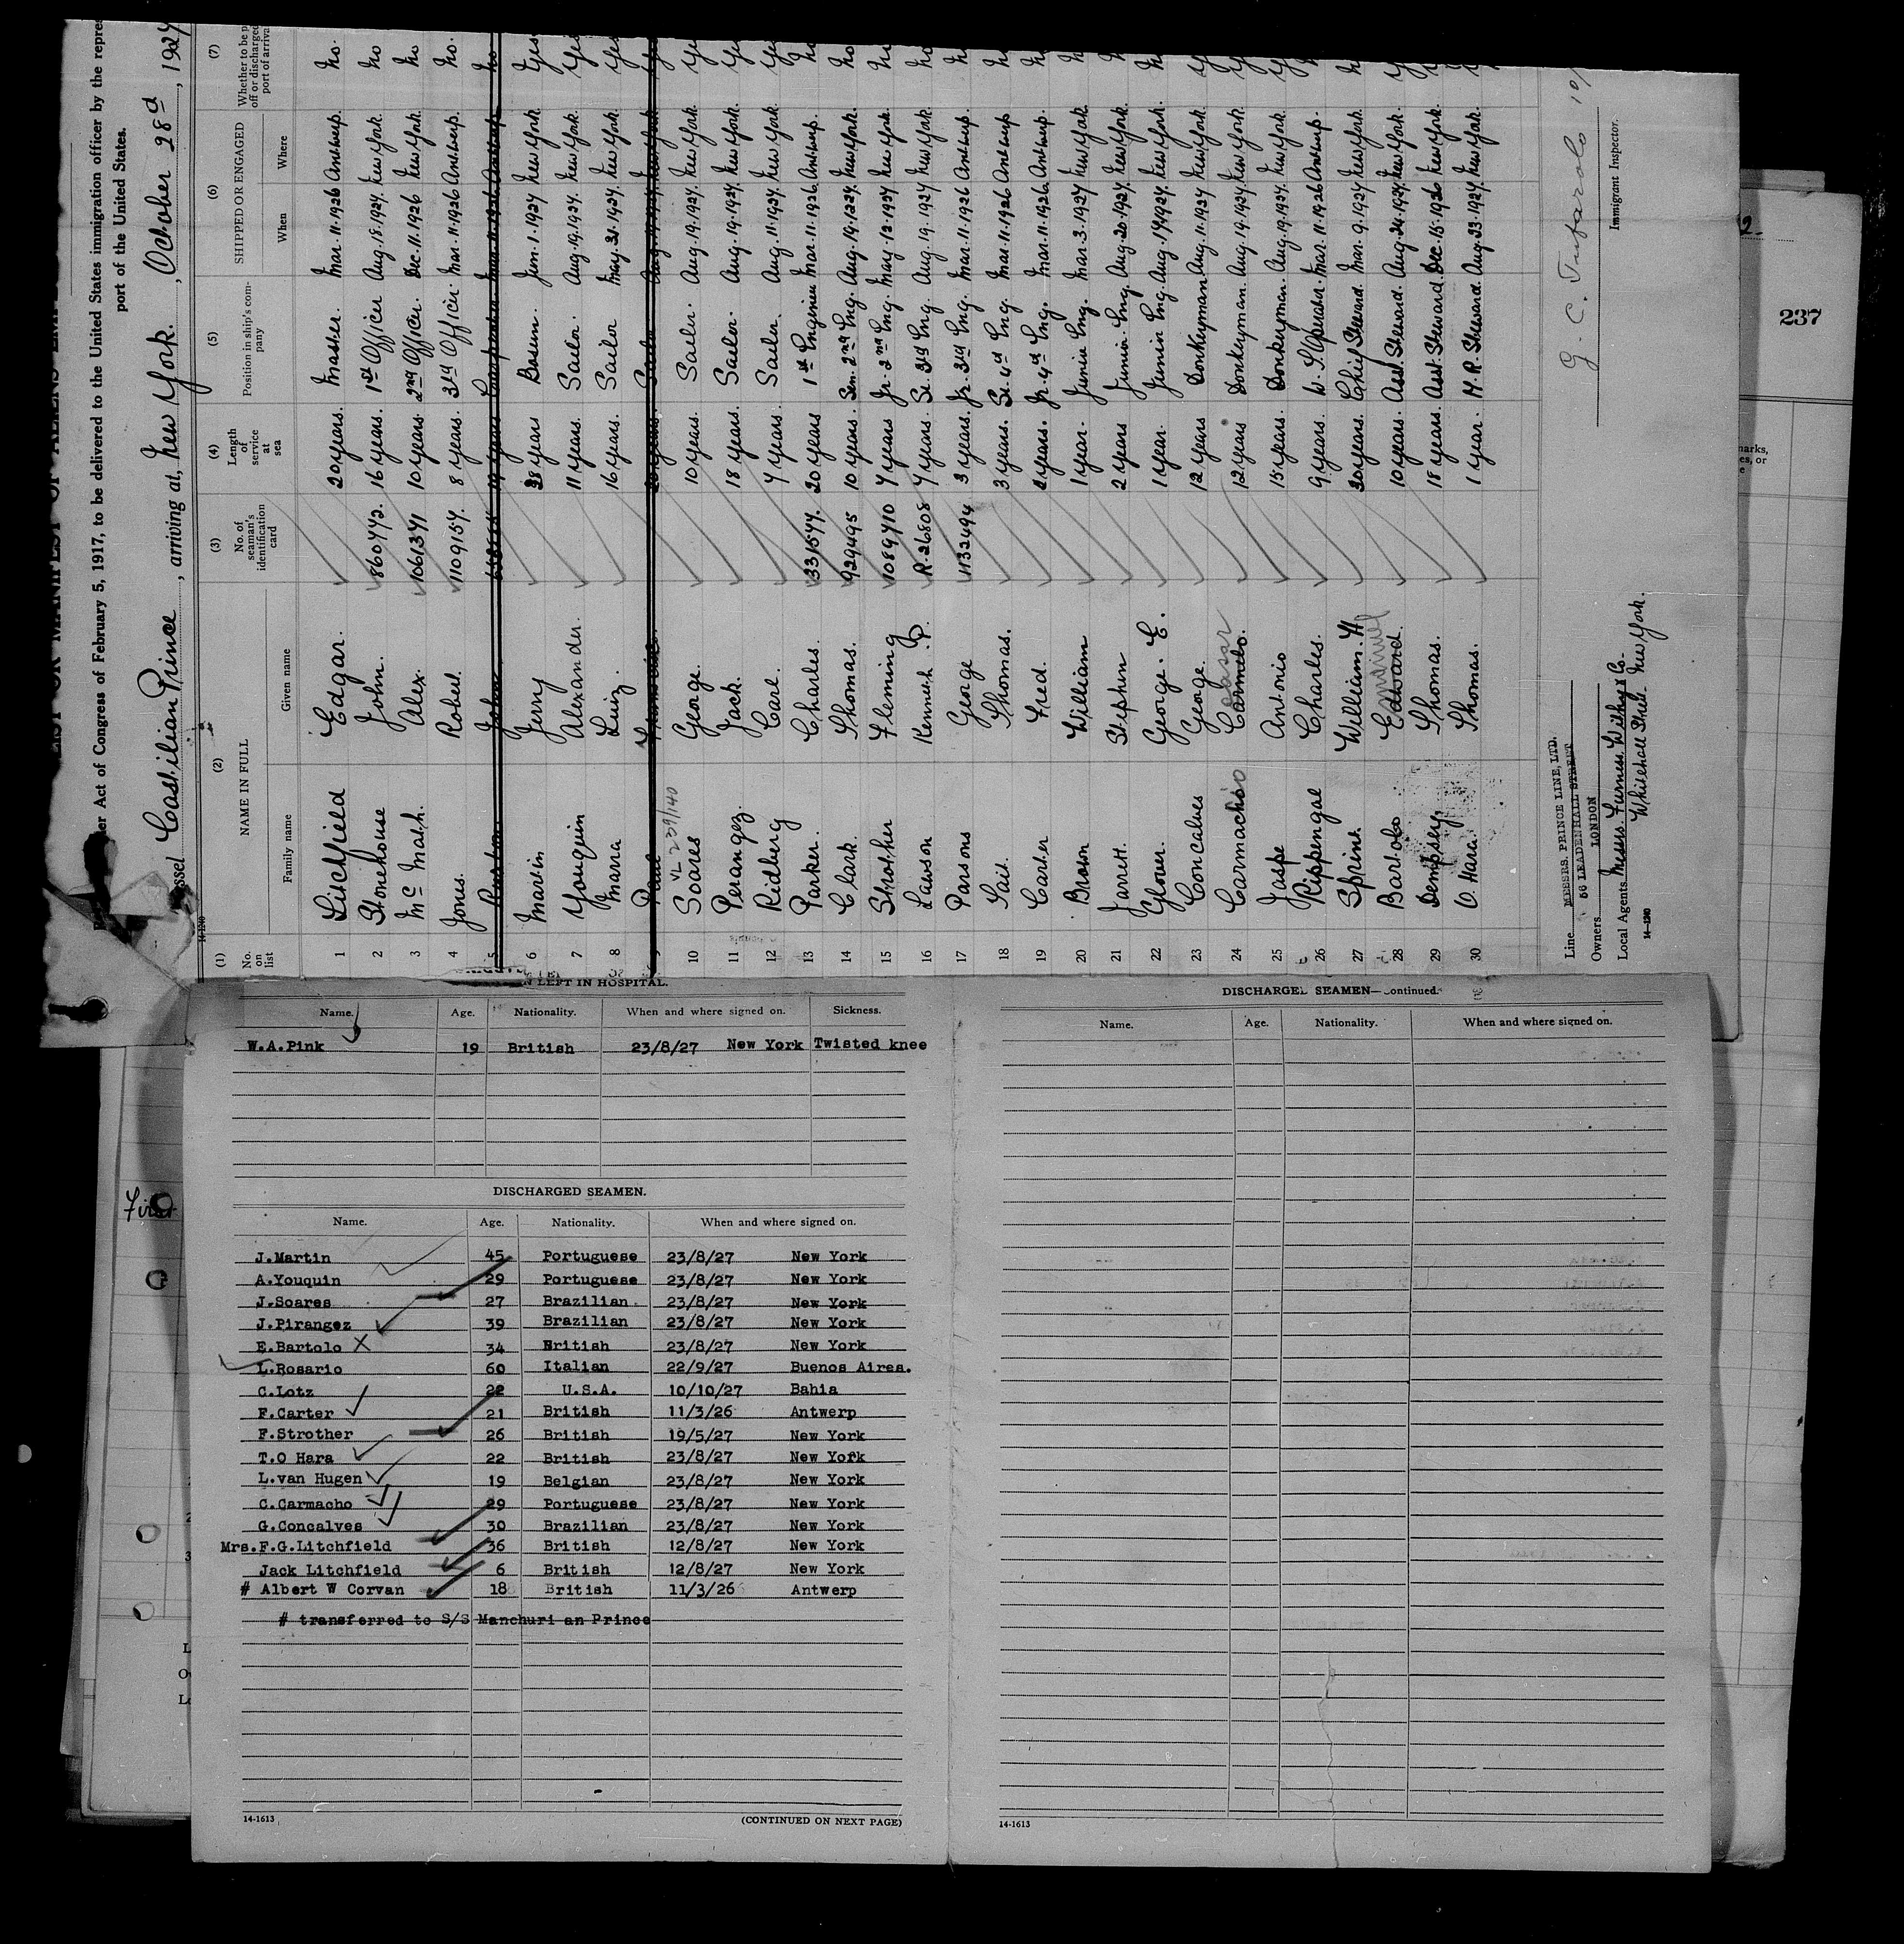 LIST OR MANIFEST OF ALIENS EMP
er Act of Congress of February 5, 1917, to be delivered to the United States immigration officer by the repre
port of the United States.
essel Castilian Prince, arriving at, New York., October 28d, 1927
(1) (2) (3) (4) (5) (6) (7)
No. on list NAME IN FULL No. of seaman's identification card Length of service at sea Position in ship's company SHIPPED OR ENGAGED Whether to be p off or discharged port of arrival
Family name Given name When Where
1 Litchfield Edgar. 20 years. Master. Mar. 11. 1926 Antwerp. No.
2 Stonehouse John. 860772. 16 years. 1st Officer Aug. 18. 1927. New York. No
3 Mc Math. Alex. 1061371 10 years. 2nd Officer. Dec. 11. 1926 New York. No
4 Jones. Robert. 1109157. 8 years. 3rd Officer. Mar. 11. 1926 Antwerp. No.
5 John 19 years Carpenter Mar. 11. 1926 Antwerp No
6 Martin Jerry 28 years Bosun. Jun. 1. 1927 New York Yes
7 Youquin Alexander. 11 years. Sailor. Aug. 19. 1927. New York. Yes
8 Marra Luiz. 16 years. Sailor May 31. 1927. New York. Yes
9 Paul Francisco. 20 years. Sailor Aug. 19. 1927. New York
10 Soares VL 239/140 George. 10 years. Sailor. Aug. 19. 1927. New York. Ye
11 Perangez. Jack. 18 years. Sailor. Aug. 19. 1927. New York. Ye
12 Ridberg Carl. 7 years. Sailor. Aug. 11. 1927 New York. Ye
13 Parker. Charles. 331577. 20 years 1st Engineer Mar. 11. 1926. Antwerp. No
14 Clark. Thomas. 929495 10 years. Sen. 2nd Eng. Aug. 19. 1927. New York. No
15 Strother Fleming 1089710 7 years Jr. 2nd Eng. May. 12. 1927 New York. N
16 Lawson Kenneth. P. R. 26808 7 years. Sr. 3rd Eng. Aug. 19. 1927 New York. No
17 Parsons George 1132494 3 years. Jr. 3rd Eng. Mar. 11. 1926 Antwerp. N
18 Thomas. 3 years. Sr. 4th Eng. Mar. 11. 1926 Antwerp No
19 Carter Fred. 2 years. Jr. 4th Eng. Mar. 11. 1926. Antwerp. No
20 William 1 year. Junior Eng. Mar. 3. 1927 New York. N
21 Jarrett. Stephen 2 years Junior Eng. Aug. 20. 1927. New York. N
22 Glover. George. E. 1 year. Junior Eng. Aug. 19 1927. New York. N
23 Concalves George. 12 years Donkeyman. Aug. 11. 1927 New York. Y
24 Carmachio Caesar Carmelo. 12 years Donkeyman. Aug. 19. 1927. New York. Y
25 Jaspe Antonio 15 years. Donkeyman. Aug. 19. 1927. New York. Y
26 Rippengal Charles. 9 years. W. T. Operator. Mar. 11. 1926 Antwerp. N
27 Sprint. William. H. 30 years. Chief Steward. Mar. 9. 1927 New York. N
28 Bartolo. Edward. 10 years. Asst. Steward. Aug. 24. 1927. New York. Y
29 Dempsey Thomas. 18 years. Asst. Steward Dec. 15. 1926 New York. N
30 O. Hara. Thomas. 1 year. M. R. Steward. Aug. 23. 1927. New York. Y
Line MESSRS. PRINCE LINE, LTD.
56 LEADENHALL STREET
Owners LONDON
Local Agents Messrs. Furness. Withy & Co.
Whitehall Street. New York.
14-1240
Immigrant Inspector.
237
arks,
es, or
First
N LEFT IN HOSPITAL.
Name. Age. Nationality. When and where signed on. Sickness.
W.A.Pink 19 British 23/8/27 New York Twisted knee
DISCHARGED SEAMEN.
Name. Age. Nationality. When and where signed on.
J.Martin 45 Portuguese 23/8/27 New York
A.Youquin 29 Portuguese 23/8/27 New York
J.Soares 27 Brazilian 23/8/27 New York
J.Pirangez 39 Brazilian 23/8/27 New York
E.Bartolo X 34 British 23/8/27 New York
L.Rosario 60 Italian 22/9/27 Buenos Aires.
C.Lotz 22 U.S.A. 10/10/27 Bahia
F.Carter 21 British 11/3/26 Antwerp
F.Strother 26 British 19/5/27 New York
T.O Hara 22 British 23/8/27 New York
L.van Hugen 19 Belgian 23/8/27 New York
C.Carmacho 29 Portuguese 23/8/27 New York
G.Concalves 30 Brazilian 23/8/27 New York
Mrs.F.G.Litchfield 36 British 12/8/27 New York
Jack Litchfield 6 British 12/8/27 New York
# Albert W Corvan 18 British 11/3/26 Antwerp
# transferred to S/S Manchuri an Prince
14-1613 (CONTINUED ON NEXT PAGE)
DISCHARGED SEAMEN—Continued.
Name. Age. Nationality. When and where signed on.
14-1613